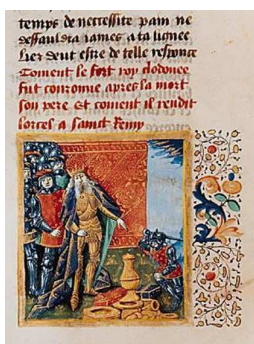 temps de necessite pain ne
deffauldra iames a ta lignee
Lier deut estre de telle responce
Coment le fort roy clodouee
fut couronne apres la mort
son pere Et coment il rendit
lorcel a sainct Remy